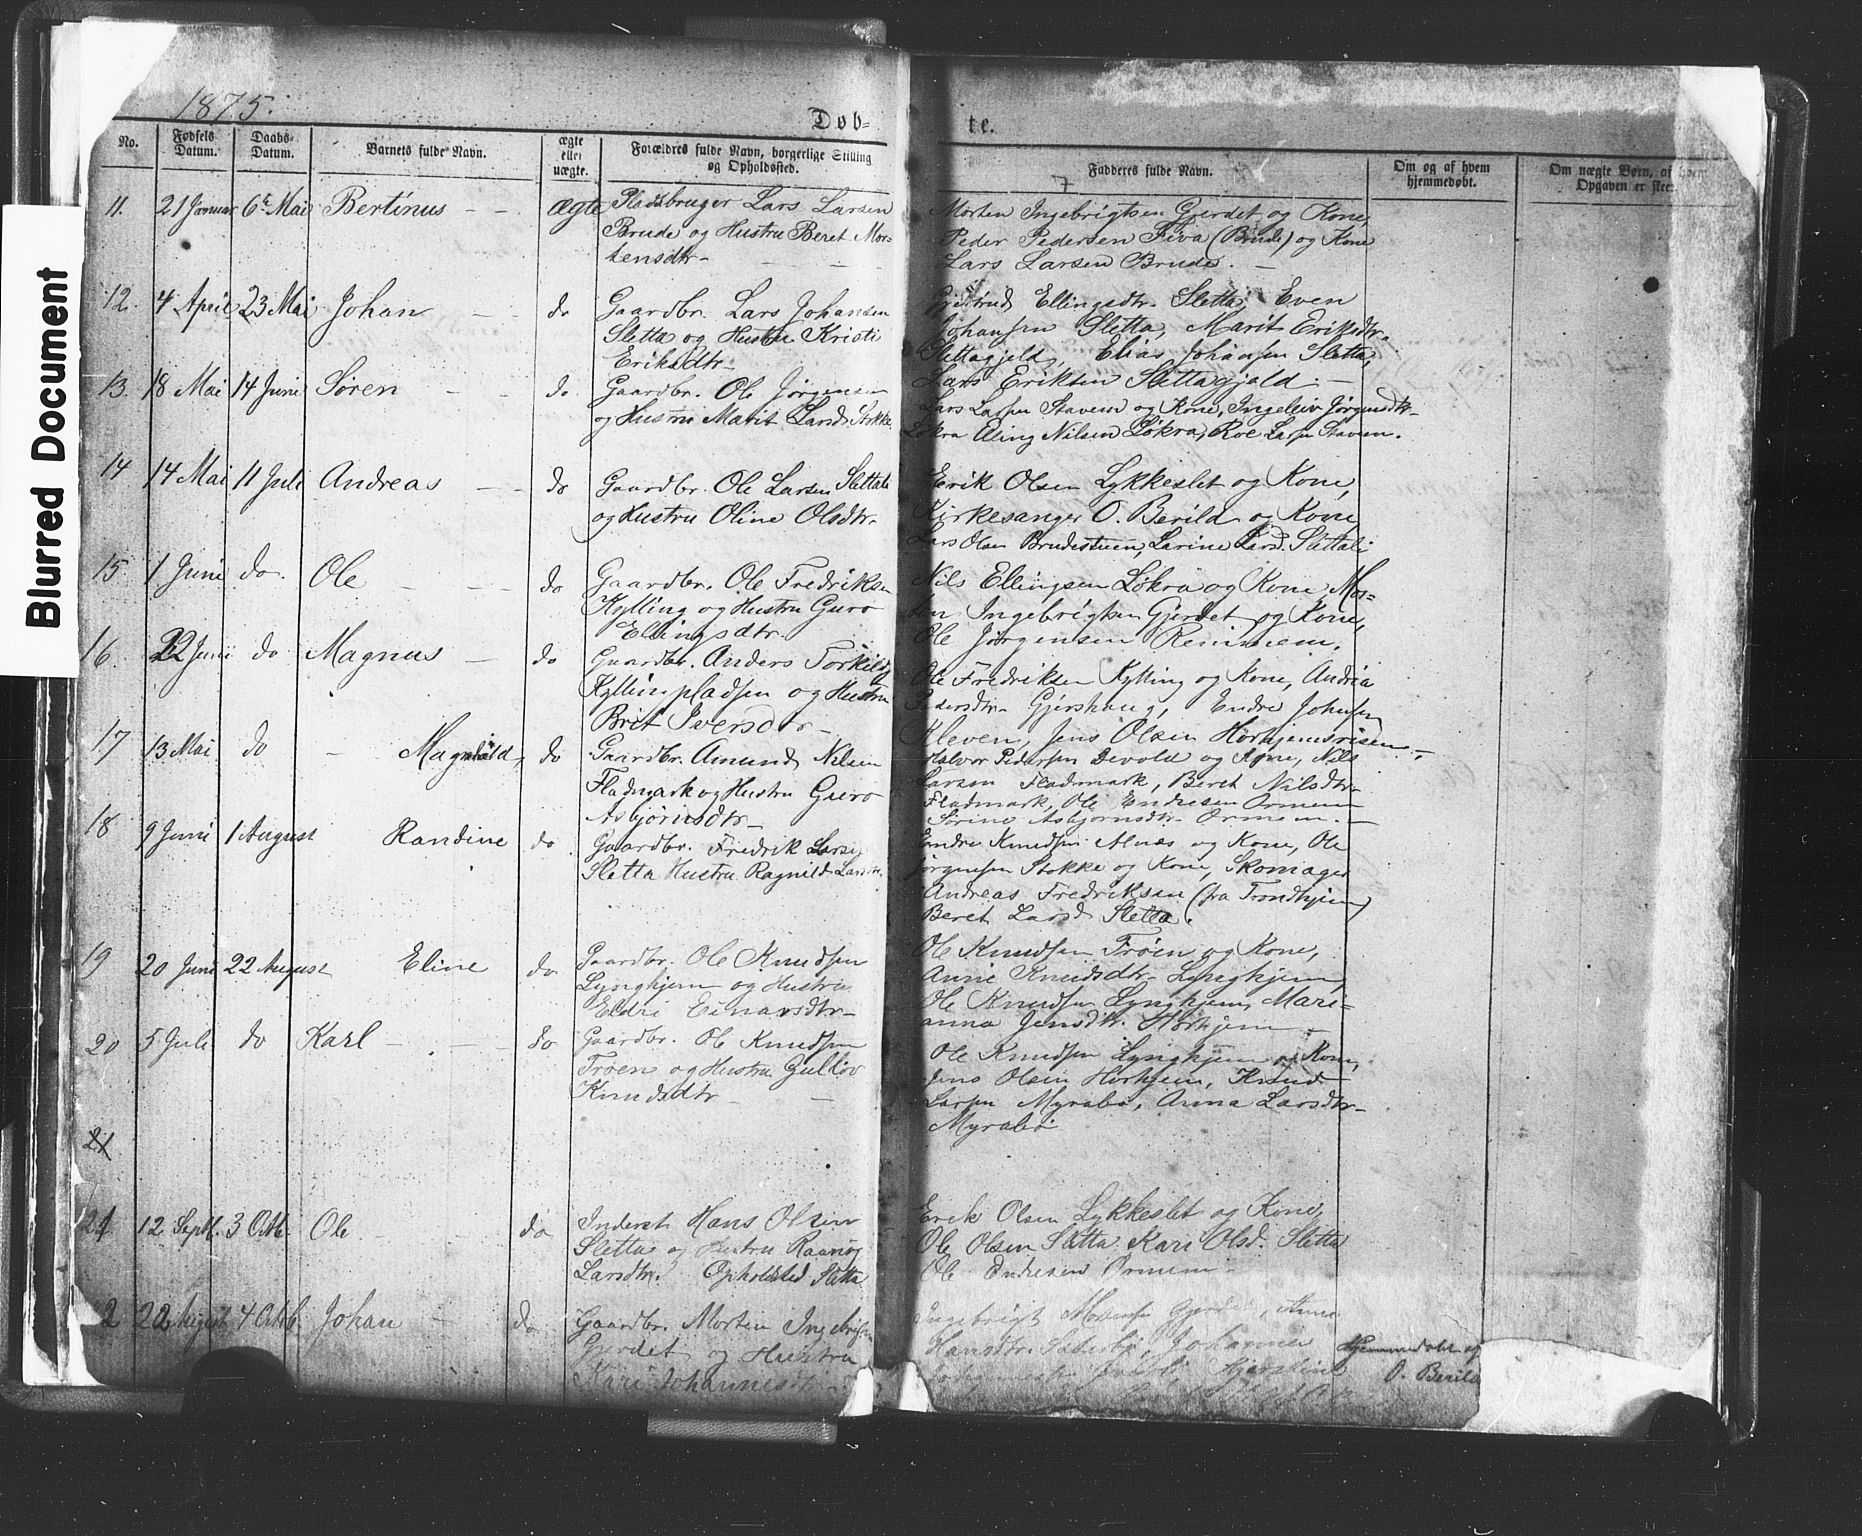 Blurred Document
1875.
Døb-
te.
No.
Fødsels
Datum.
Daabs-
Datum.
Barnets fulde Navn.
ægte
eller
uægte.
Forældres fulde Navn, borgerlige Stilling
og Opholdssted.
Fadderes fulde Navn.
Om og af hvem
hjemmedøbt.
Om uægte Børn, af hvem
Opgaven er skeet.
11. 21 Januar 6te Mai Bertinus - - ægte
Pladsbruger Lars Larsen
Brude og Hustru Beret Mor-
tensdtr -
Morten Ingebrigtsen Gjerdet og Kone,
Peder Pedersen Fiva (Brude) og Kone
Lars Larsen Brude. -
12. 4 April 23 Mai Johan - - do
Gaardbr. Lars Johansen
Sletta og Hustru Kristi
Eriksdtr -
Gjertrud Ellingsdtr. Sletta, Even
Johansen Sletta, Marit Eriksdtr.
Slettagjeld, Elias Johansen Sletta,
Lars Eriksen Slettagjeld. -
13. 18 Mai 14 Juni Søren - - do.
Gaardbr. Ole Jørgensen
og Hustru Marit Larsd. Stokke
Lars Larsen Stavem og Kone, Ingeleiv Jørgensdtr.
Løkra Eling Nilsen Løkra, Roe Larsen Stavem.
14 14 Mai 11 Juli Andreas - - do
Gaardbr. Ole Larsen Slettali
og Hustru Oline Olsdtr.
Erik Olsen Lykkeslet og Kone,
Kirkesanger O. Berild og Kone
Lars Olsen Brudestuen, Larine Larsd. Slettali
15 1 Juni do. Ole - - - do
Gaardbr. Ole Fredriksen
Kylling og Hustru Guro
Ellingsdtr.
Nils Ellingsen Løkra og Kone, Mor-
ten Ingebrigtsen Gjerdet og Kone,
Ole Jørgensen Remmem.
16. 22 Juni do Magnus - do
Gaardbr. Anders Torkilds
Kyllingpladsen og Hustru
Brit Iversdtr -
Ole Fredriksen Kylling og Kone, Andria
Pedersdtr. Gjershaug, Endre Johnsen
Kleven, Jens Olsen Horhjemsrisen -
17 13 Mai do - Magnhild, do
Gaardbr. Amund Nilsen
Fladmark og Hustru Guro
Asbjørnsdtr -
Halvor Pedersen Devold og Kone, Nils
Larsen Fladmark, Beret Nilsdtr.
Fladmark, Ole Endresen Ormem
Sørine Asbjørnsdtr. Ormem. -
18 9 Juni 1 August Randine do
Gaardbr. Fredrik Larsen
Sletta Hustru Ragnild Larsdtr.
Endre Knudsen Alnæs og Kone, Ole
Jørgensen Stokke og Kone, Skomager
Andreas Fredriksen (fra Trondhjem)
Beret Larsd. Sletta.
19 20 Juni 22 August Eline do
Gaardbr. Ole Knudsen
Lynghjem og Hustru
Eldri Einarsdtr -
Ole Knudsen Trøen og Kone,
Anne Knudsdtr. Lynghjem,
Ole Knudsen Lynghjem, Mari-
anna Jensdtr. Horhjem -
20 5 Juli do Karl - - - do
Gaardbr. Ole Knudsen
Trøen og Hustru Gulløv
Knudsdtr - -
Ole Knudsen Lynghjem og Kone,
Jens Olsen Horhjem, Knud
Larsen Myrabø, Anna Larsdtr.
Myrabø
21
21 12 Septb. 3 Octb. Ole - - do
Inderst Hans Olsen
Sletta og Hustru Raanøg
Larsdtr. Opholdsted Sletta
Erik Olsen Lykkeslet og Kone,
Ole Olsen Sletta Kari Olsd. Sletta
Ole Endresen Ormem -
2 22 August 4 Octob. Johan - do
Gaardbr. Morten Ingebrigtsen
Gjerdet og Hustru
Kari Johannesdtr.
Ingebrigt Mortensen Gjerdet, Anne
Hansdtr. Sæterbø, Johanne
Hjemmedøbt af
O. Berild